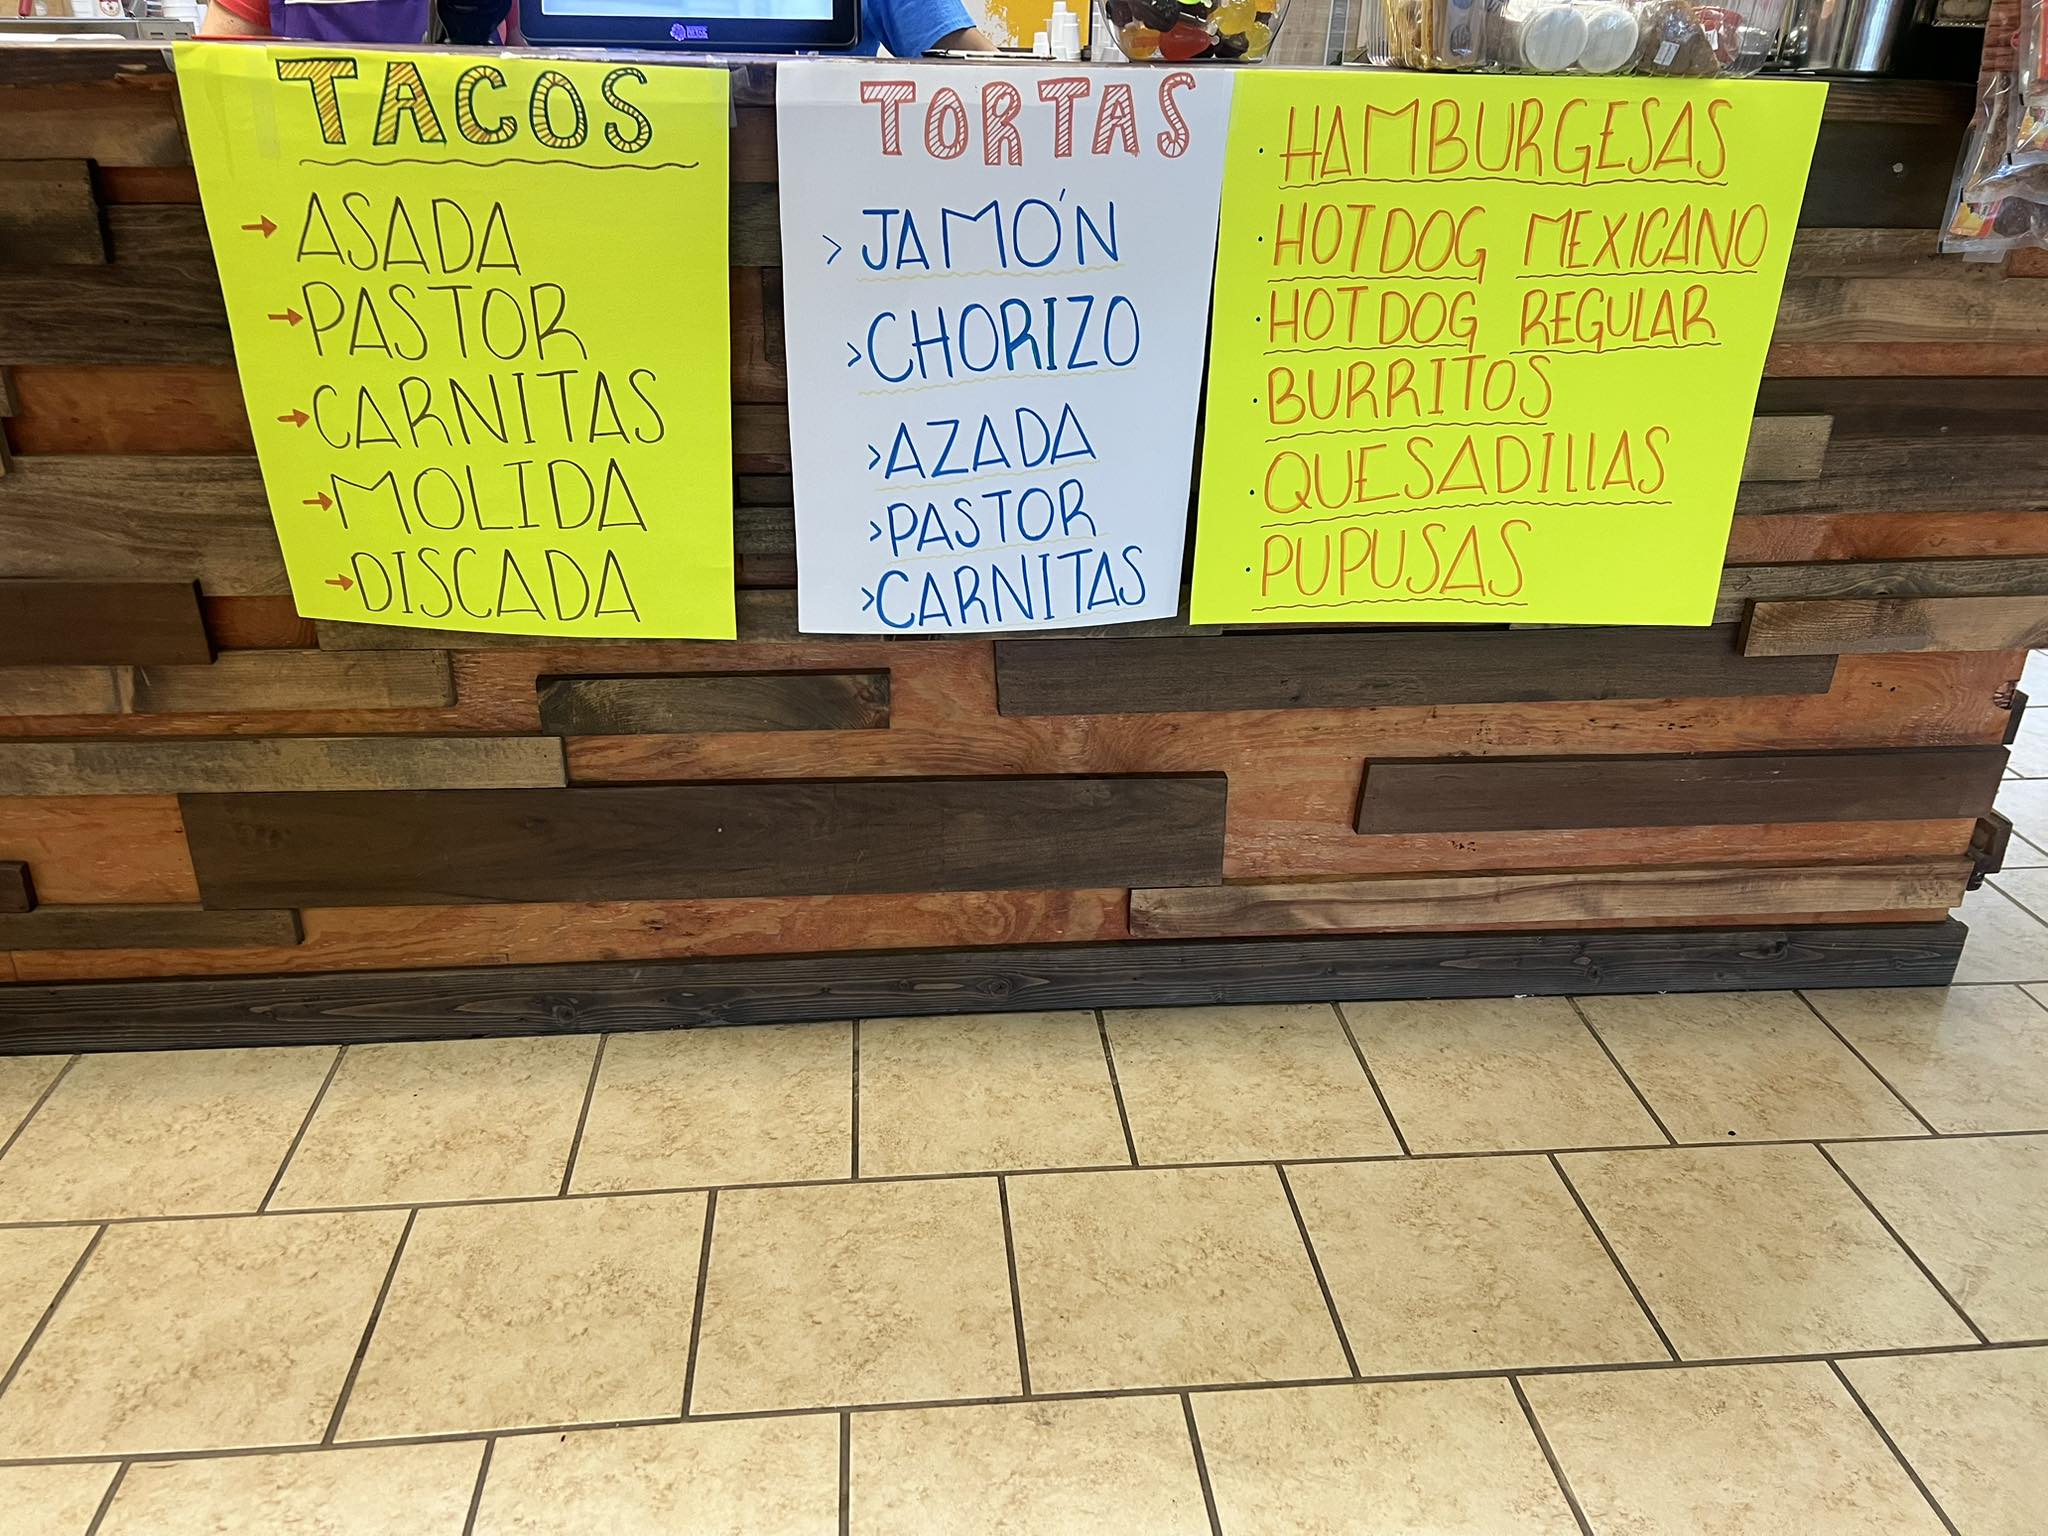 TACOS
→ ASADA
→ PASTOR
→ CARNITAS
→ MOLIDA
→ DISCADA
TORTAS
> JAMÓN
> CHORIZO
> AZADA
> PASTOR
> CARNITAS
· HAMBURGESAS
· HOTDOG MEXICANO
· HOTDOG REGULAR
· BURRITOS
· QUESADILLAS
· PUPUSAS